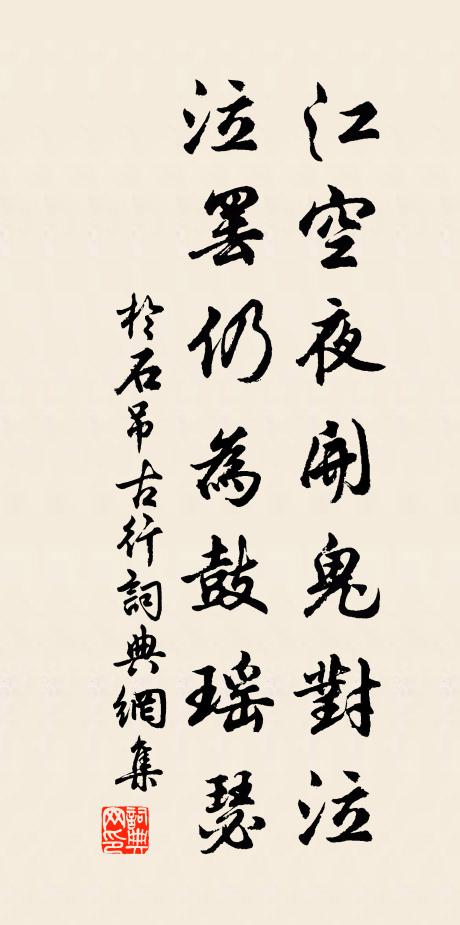 江空夜開鬼對泣
泣罷仍為鼓瑤瑟
於石吊古行詞典網集
詞典
网印